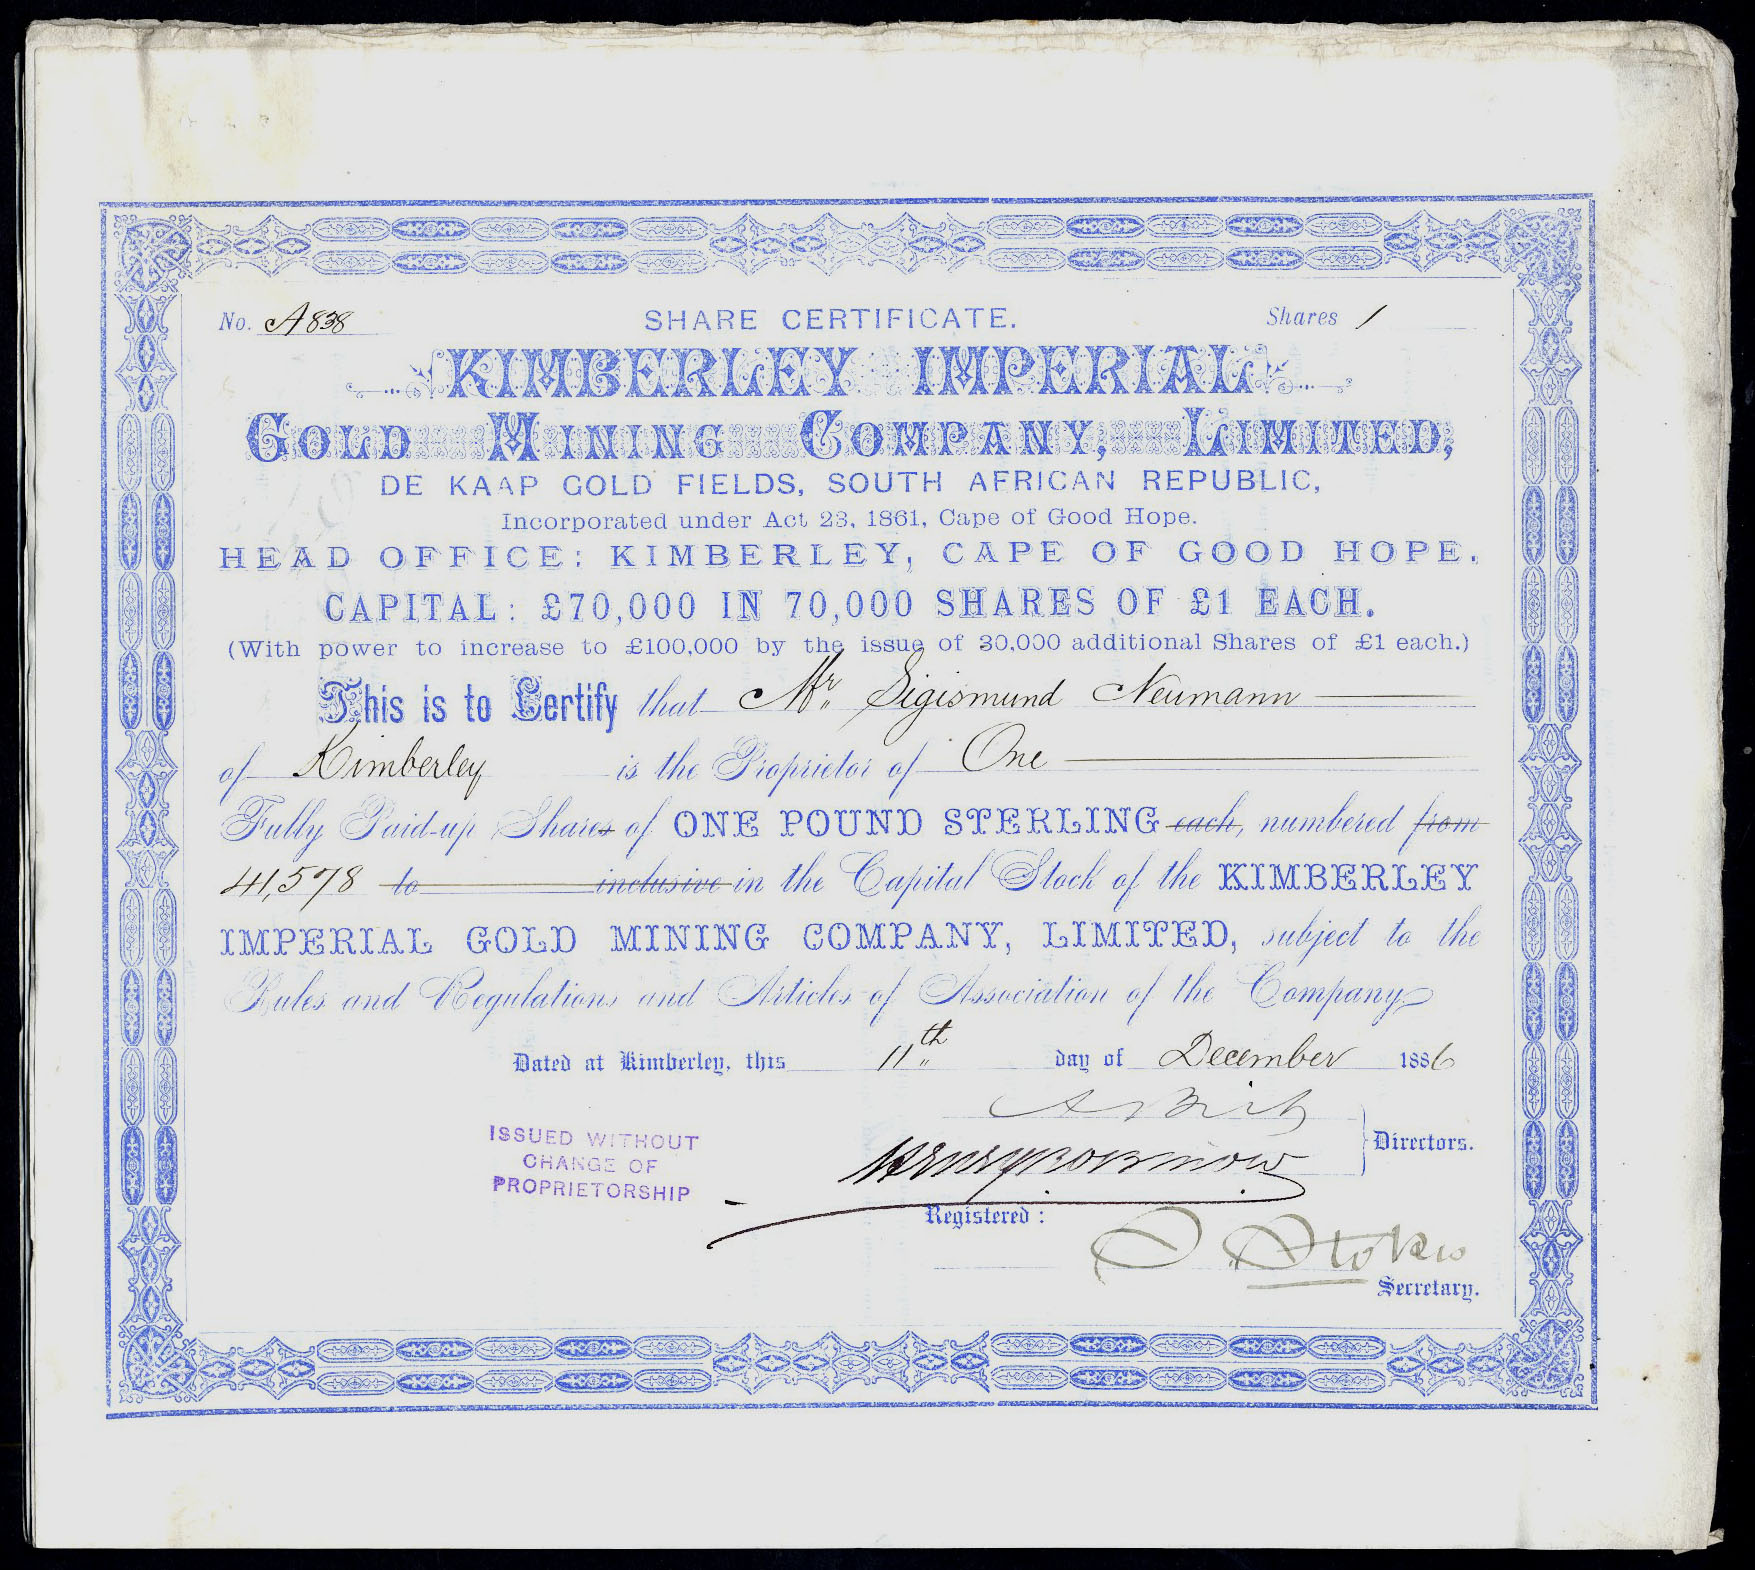 No. A 838 SHARE CERTIFICATE. Shares 1
KIMBERLEY IMPERIAL
GOLD MINING COMPANY, LIMITED,
DE KAAP GOLD FIELDS, SOUTH AFRICAN REPUBLIC,
Incorporated under Act 23, 1861, Cape of Good Hope.
HEAD OFFICE: KIMBERLEY, CAPE OF GOOD HOPE.
CAPITAL: £70,000 IN 70,000 SHARES OF £1 EACH.
(With power to increase to £100,000 by the issue of 30,000 additional Shares of £1 each.)
This is to Certify that Mr. Sigismund Neumann
of Kimberley is the Proprietor of One
Fully Paid-up Shares of ONE POUND STERLING each, numbered from
41,578 to inclusive in the Capital Stock of the KIMBERLEY
IMPERIAL GOLD MINING COMPANY, LIMITED, subject to the
Rules and Regulations and Articles of Association of the Company
Dated at Kimberley, this 11th day of December 1886
Directors.
ISSUED WITHOUT
CHANGE OF
PROPRIETORSHIP
Registered:
Stokes
Secretary.